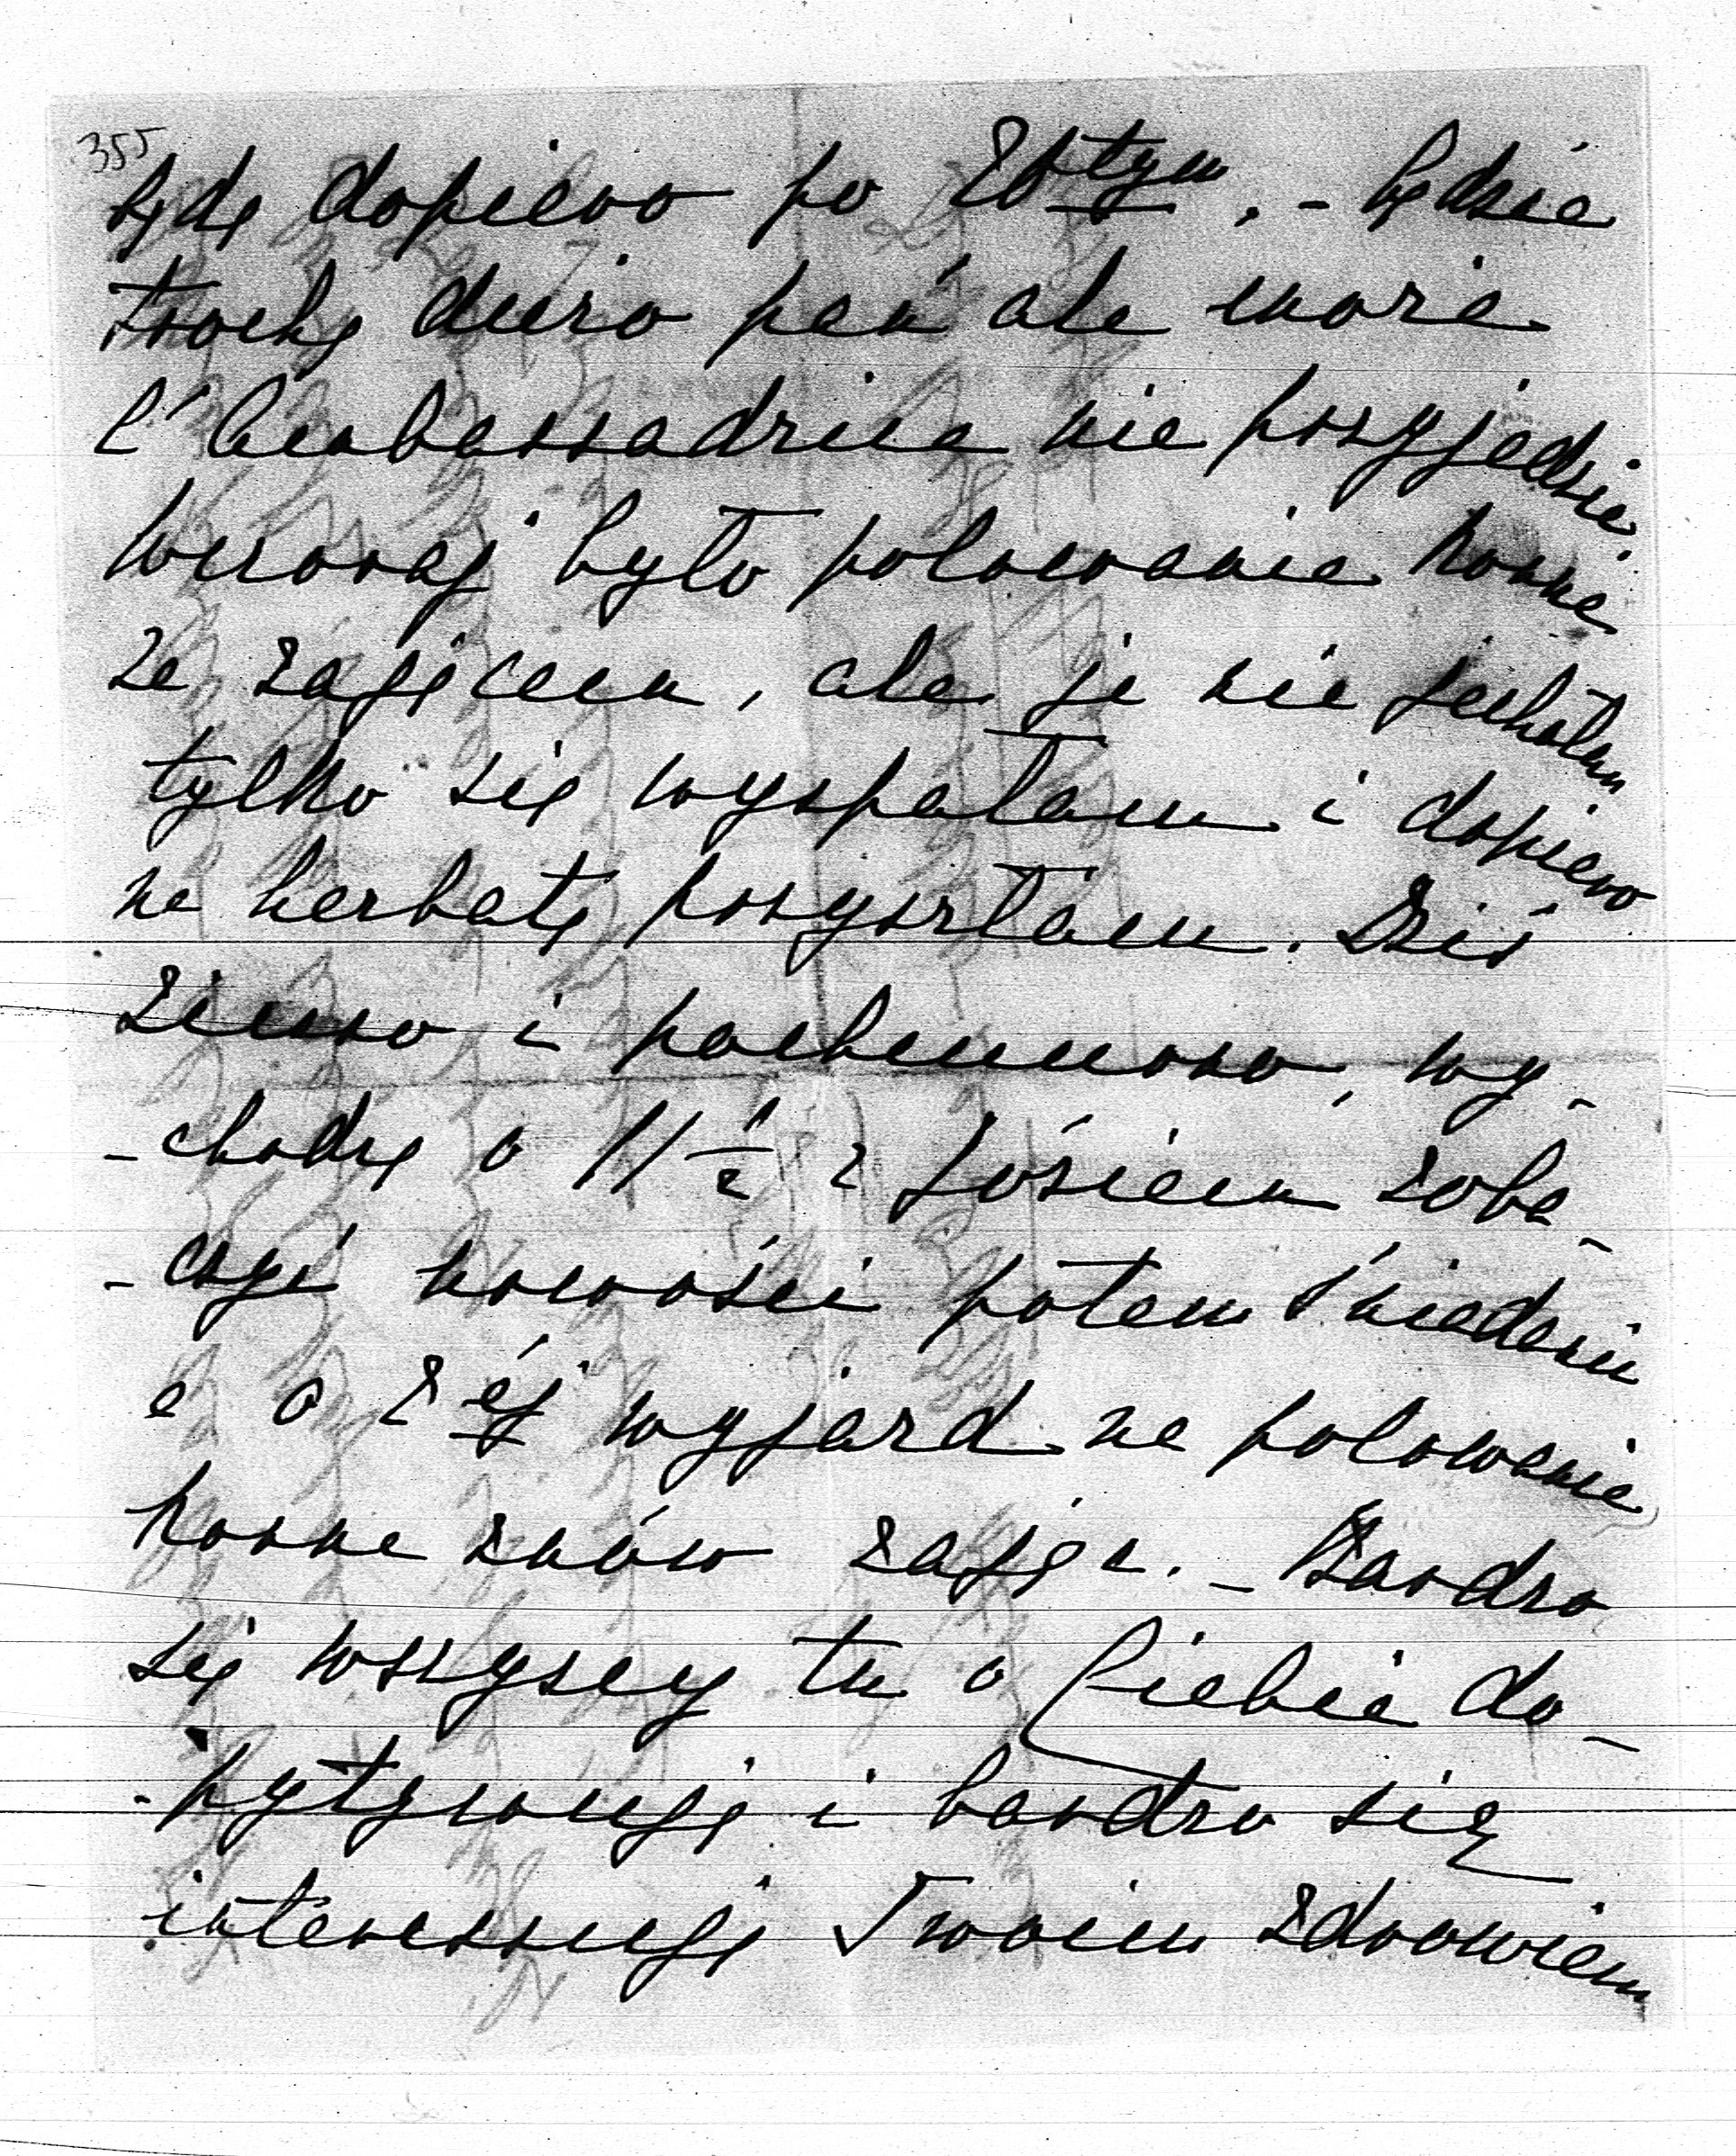 355
będę dopiero po 20tym. - będzie
trochę dużo pań ale może
l'Ambassadrice nie przyjedzie.
Wczoraj było polowanie konne
za zającem, ale ja nie jechałam
tylko się wyspałam i dopiero
na herbatę przyszłam. Dziś
zimno i pochmurno, wy-
-chodzę o 11 1/2 z Józiem zoba-
-czyć nowości potem śniadanie
a o 2éj wyjazd na polowanie
konne znów zając. - Bardzo
się wszyscy tu o Ciebie do-
-pytywują i bardzo się
interessują Twoim zdrowiem